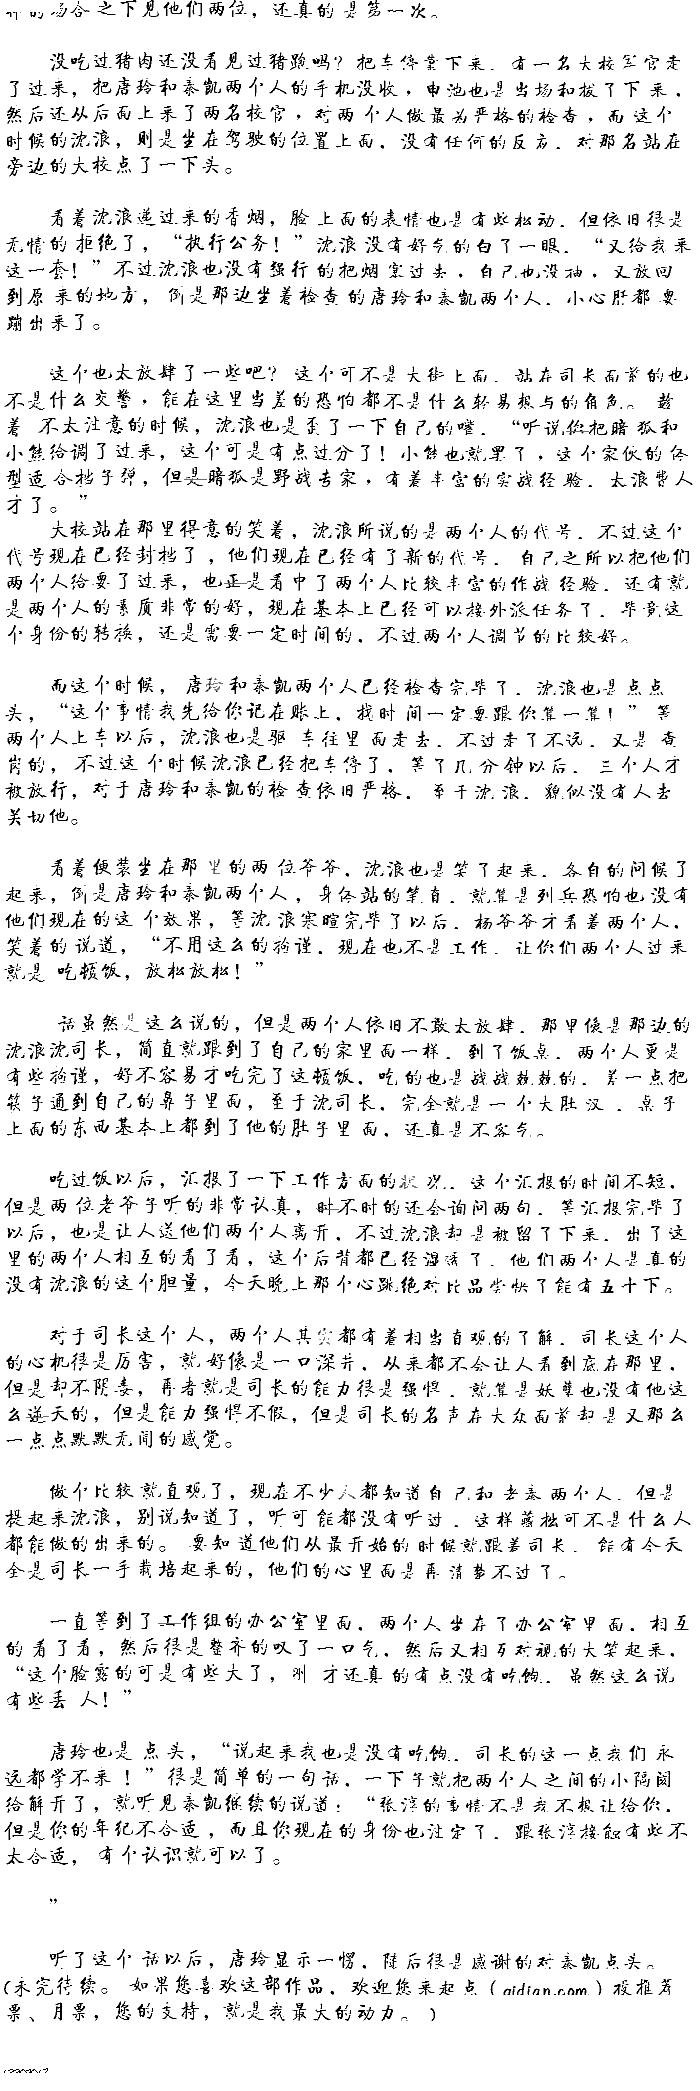 的场合之下见他们两位，还真的是第一次。
没吃过猪肉还没看见过猪跑吗？把车停靠下来，有一名大校军官走
了过来，把唐玲和秦凯两个人的手机没收，电池也是当场和拔了下来，
然后还从后面上来了两名校官，对两个人做最为严格的检查，而这个
时候的沈浪，则是坐在驾驶的位置上面，没有任何的反应，对那名站在
旁边的大校点了一下头。
看着沈浪递过来的香烟，脸上面的表情也是有些松动，但依旧很是
无情的拒绝了，“执行公务！”沈浪没有好气的白了一眼，“又给我来
这一套！”不过沈浪也没有强行的把烟塞过去，自己也没抽，又放回
到原来的地方，倒是那边坐着检查的唐玲和秦凯两个人，小心肝都要
蹦出来了。
这个也太放肆了一些吧？这个可不是大街上面，站在司长面前的也
不是什么交警，能在这里当差的恐怕都不是什么轻易想与的角色。趁
着 不太注意的时候，沈浪也是歪了一下自己的嘴，“听说你把暗狐和
小熊给调了过来，这个可是有点过分了！小熊也就罢了，这个家伙的体
型适合挡子弹，但是暗狐是野战专家，有着丰富的实战经验，太浪费人
才了。”
大校站在那里得意的笑着，沈浪所说的是两个人的代号，不过这个
代号现在已经封档了，他们现在已经有了新的代号，自己之所以把他们
两个人给要了过来，也正是看中了两个人比较丰富的作战经验，还有就
是两个人的素质非常的好，现在基本上已经可以接外派任务了，毕竟这
个身份的转换，还是需要一定时间的，不过两个人调节的比较好。
而这个时候，唐玲和秦凯两个人已经检查完毕了，沈浪也是点点
头，“这个事情我先给你记在账上，找时间一定要跟你算一算！”等
两个人上车以后，沈浪也是驱车往里面走去，不过走了不远，又是查
岗的，不过这个时候沈浪已经把车停了，等了几分钟以后，三个人才
被放行，对于唐玲和秦凯的检查依旧严格，至于沈浪，貌似没有人去
关切他。
看着便装坐在那里的两位爷爷，沈浪也是笑了起来，各自的问候了
起来，倒是唐玲和秦凯两个人，身体站的笔直，就算是列兵恐怕也没有
他们现在的这个效果，等沈浪寒暄完毕了以后，杨爷爷才看着两个人，
笑着的说道，“不用这么的拘谨，现在也不是工作，让你们两个人过来
就是吃顿饭，放松放松！”
话虽然是这么说的，但是两个人依旧不敢太放肆，那里像是那边的
沈浪沈司长，简直就跟到了自己的家里面一样，到了饭桌，两个人更是
有些拘谨，好不容易才吃完了这顿饭，吃的也是战战兢兢的，差一点把
筷子通到自己的鼻子里面，至于沈司长，完全就是一个大肚汉，桌子
上面的东西基本上都到了他的肚子里面，还真是不客气。
吃过饭以后，汇报了一下工作方面的状况，这个汇报的时间不短，
但是两位老爷子听的非常认真，时不时的还会询问两句，等汇报完毕了
以后，也是让人送他们两个人离开，不过沈浪却是被留了下来，出了这
里的两个人相互的看了看，这个后背都已经湿透了，他们两个人是真的
没有沈浪的这个胆量，今天晚上那个心跳绝对比品尝快了能有五十下。
对于司长这个人，两个人其实都有着相当直观的了解，司长这个人
的心机很是厉害，就好像是一口深井，从来都不会让人看到底在那里，
但是却不阴毒，再者就是司长的能力很是强悍，就算是妖孽也没有他这
么逆天的，但是能力强悍不假，但是司长的名声在大众面前却是又那么
一点点默默无闻的感觉。
做个比较就直观了，现在不少人都知道自己和老秦两个人，但是
提起来沈浪，别说知道了，听可能都没有听过，这样藏拙可不是什么人
都能做的出来的。要知道他们从最开始的时候就跟着司长，能有今天
全是司长一手栽培起来的，他们的心里面是再清楚不过了。
一直等到了工作组的办公室里面，两个人坐在了办公室里面，相互
的看了看，然后很是整齐的叹了一口气，然后又相互对视的大笑起来，
“这个脸露的可是有些大了，刚才还真的有点没有吃饱，虽然这么说
有些丢人！”
唐玲也是点头，“说起来我也是没有吃饱，司长的这一点我们永
远都学不来！”很是简单的一句话，一下子就把两个人之间的小隔阂
给解开了，就听见秦凯继续的说道：“张淳的事情不是我不想让给你，
但是你的年纪不合适，而且你现在的身份也注定了，跟张淳接触有些不
太合适，有个认识就可以了。
”
听了这个话以后，唐玲显示一愣，随后很是感谢的对秦凯点头。
(未完待续。如果您喜欢这部作品，欢迎您来起点（qidian.com）投推荐
票、月票，您的支持，就是我最大的动力。)